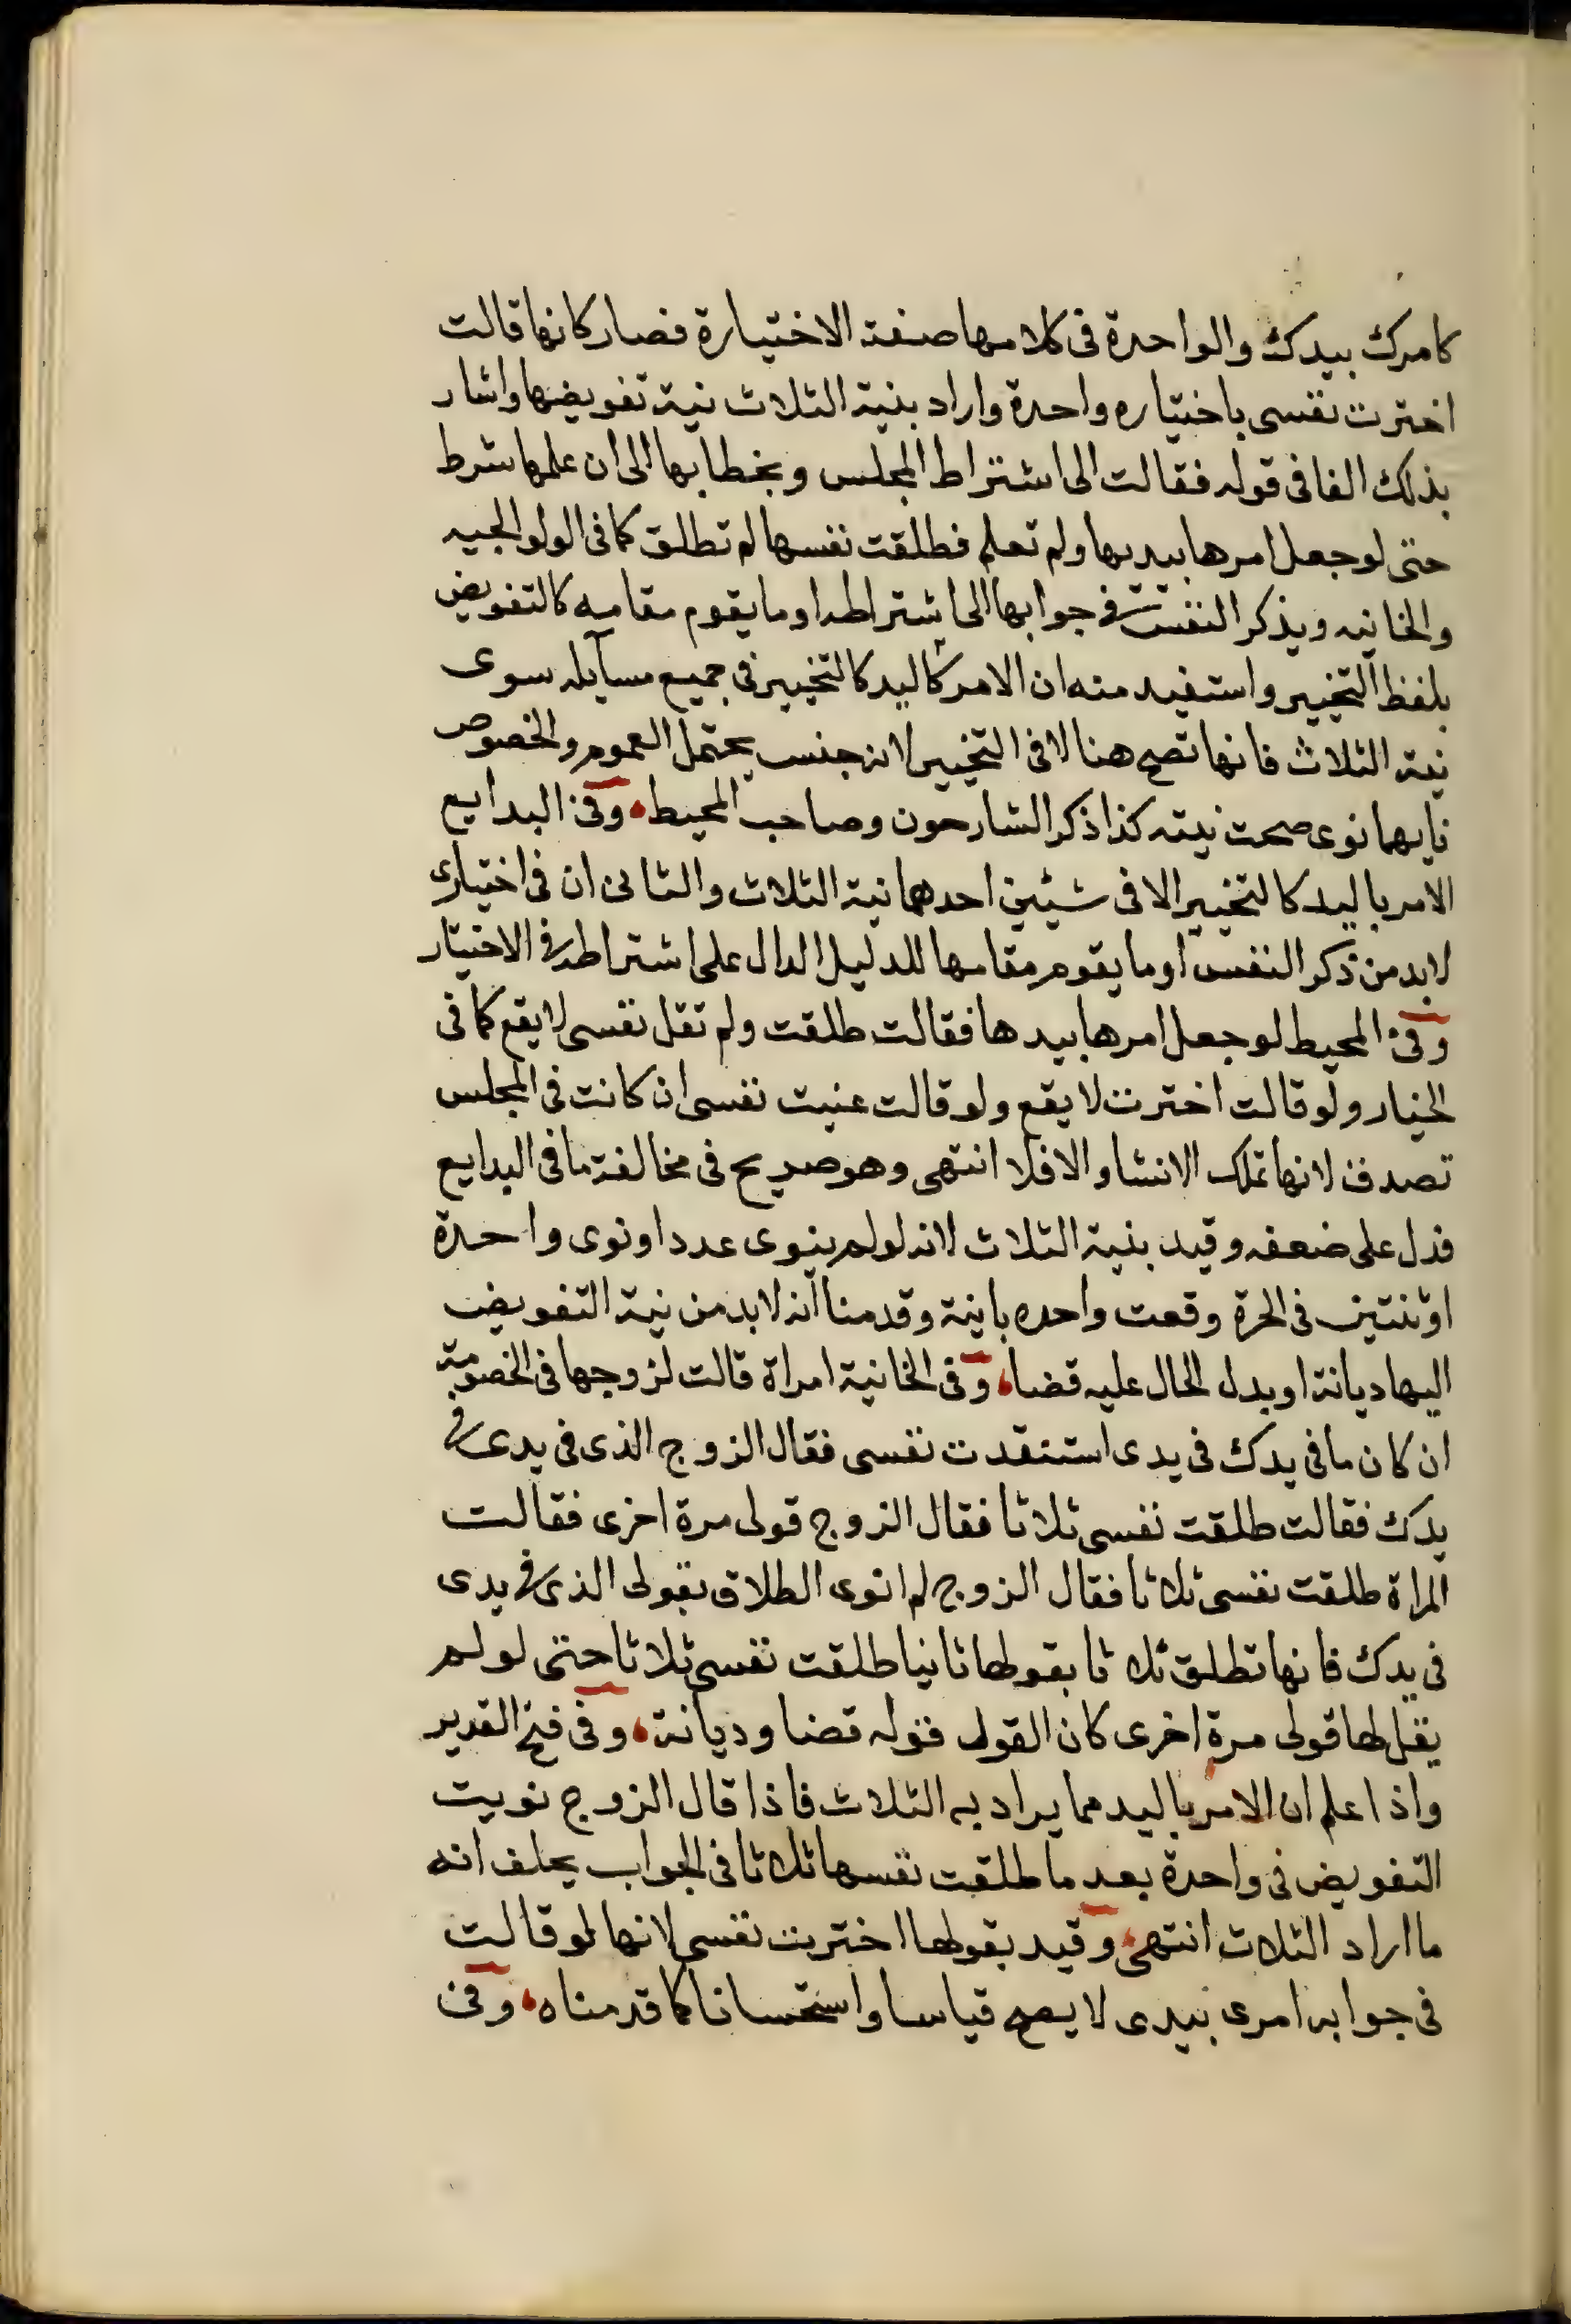 كامرك بيدك والواحدة فى كلامها صفة الاختيارة فصار كانها قالت
اخترت نفسى باختياره واحدة واراد بنية الثلاث نية تفويضها واشار
بذلك الفا فى قوله فقالت الى اشتراط المجلس وبخطابها الى ان علمها شرط
حتى لو جعل امرها بيدها ولم تعلم فطلقت نفسها لم تطلق كما فى الولوالجيه
والخانيه وبذكر النفس فى جوابها الى اشتراطه او ما يقوم مقامه كالتفويض
بلفظ التخيير واستفيد منه ان الامر باليد كالتخيير فى جميع مسآيله سوى
نية الثلاث فانها تصح هنا لا فى التخيير لانه جنس يحتمل العموم والخصوص
فايهما نوى صحت نيته كذا ذكر الشارحون وصاحب المحيط، وفى البدايع
الامر باليد كالتخيير الا فى شيئين احدهما نية الثلاث والثانى ان فى اختيارى
لابد من ذكر النفس او ما يقوم مقامها للدليل الدال على اشتراطه فى الاختيار
وفى المحيط لو جعل امرها بيدها فقالت طلقت ولم تقل نفسى لا يقع كما فى
الخيار ولو قالت اخترت لا يقع ولو قالت عنيت نفسى ان كانت فى المجلس
تصدق لانها تملك الانشا والا فلا انتهى وهو صريح فى مخالفة ما فى البدايع
فدل على ضعفه وقيد بنية الثلاث لانه لو لم ينوى عددا او نوى واحدة
او ثنتين فى الحرة وقعت واحده باينة وقدمنا انه لابد من نية التفويض
اليها ديانة او يدل الحال عليه قضا، وفى الخانية امراة قالت لزوجها فى الخصومة
ان كان ما فى يدك فى يدى استنقدت نفسى فقال الزوج الذى فى يدى فى
يدك فقالت طلقت نفسى ثلاثا فقال الزوج قولى مرة اخرى فقالت
المراة طلقت نفسى ثلاثا فقال الزوج لم انوى الطلاق بقولى الذى فى يدى
فى يدك فانها تطلق ثلاثا بقولها ثانيا طلقت نفسى ثلاثا حتى لو لم
يقل لها قولى مرة اخرى كان القول قوله قضا وديانة، وفى فتح القدير
واذا علم ان الامر باليد مما يراد به الثلاث فاذا قال الزوج نويت
التفويض فى واحدة بعد ما طلقت نفسها ثلاثا فى الجواب يحلف انه
ما اراد الثلاث انتهى، وقيد بقولها اخترت نفسى لانها لو قالت
فى جوابه امرى بيدى لا يصح قياسا واستحسانا كما قدمناه، وفى